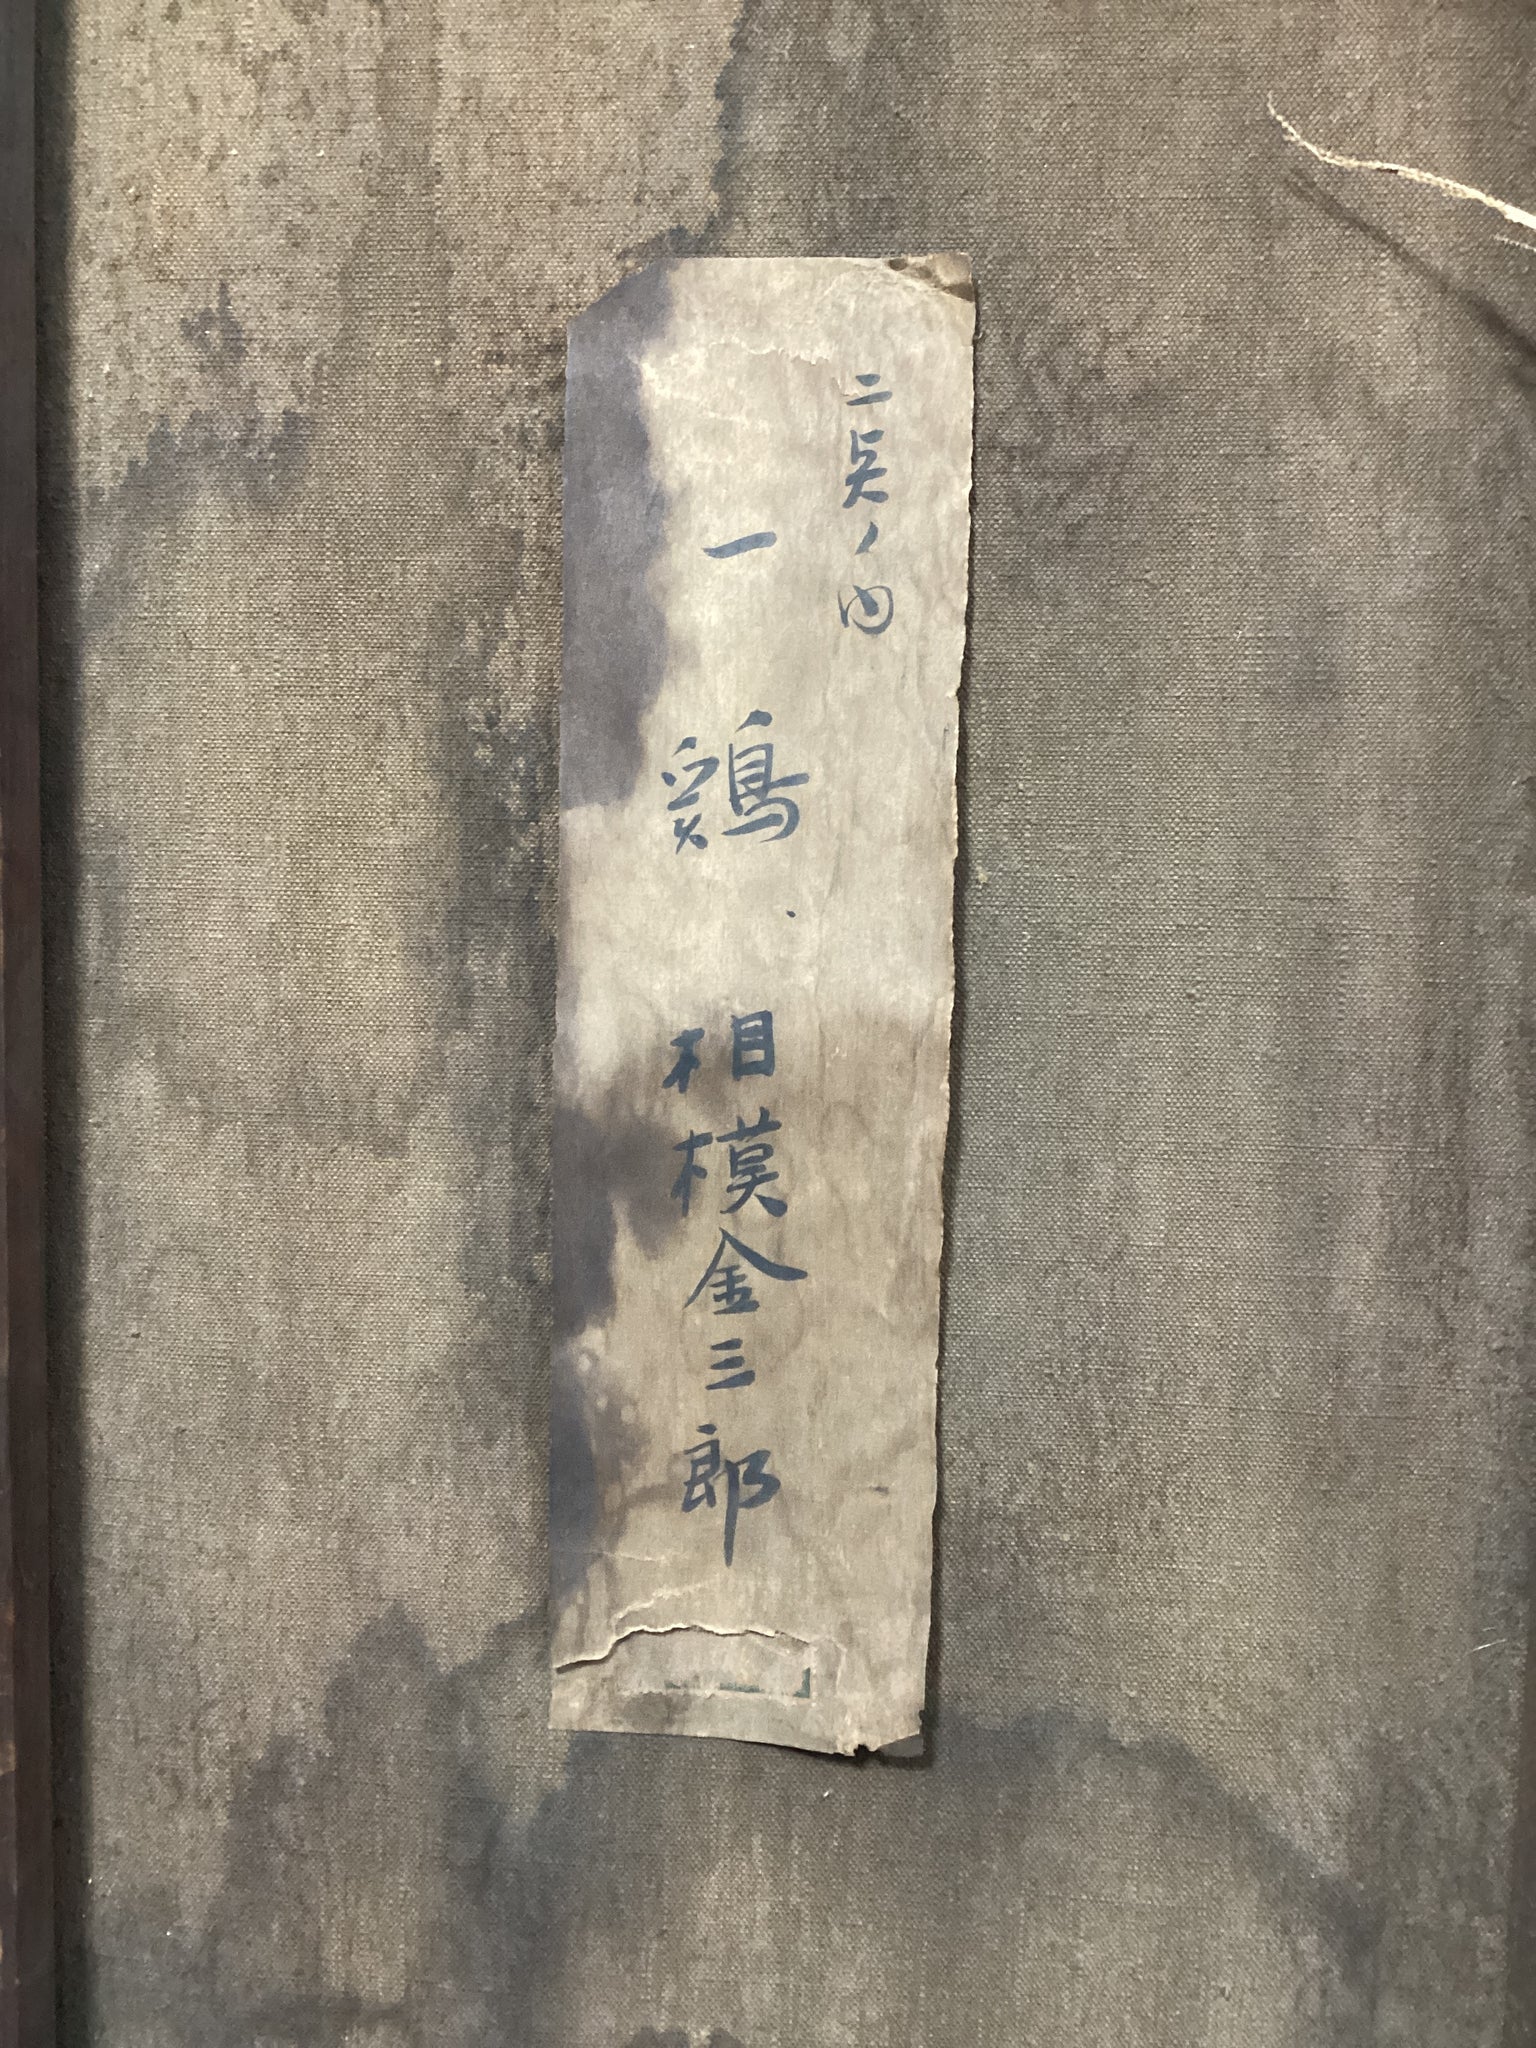 二点ノ内
一 鶏
相模金三郎